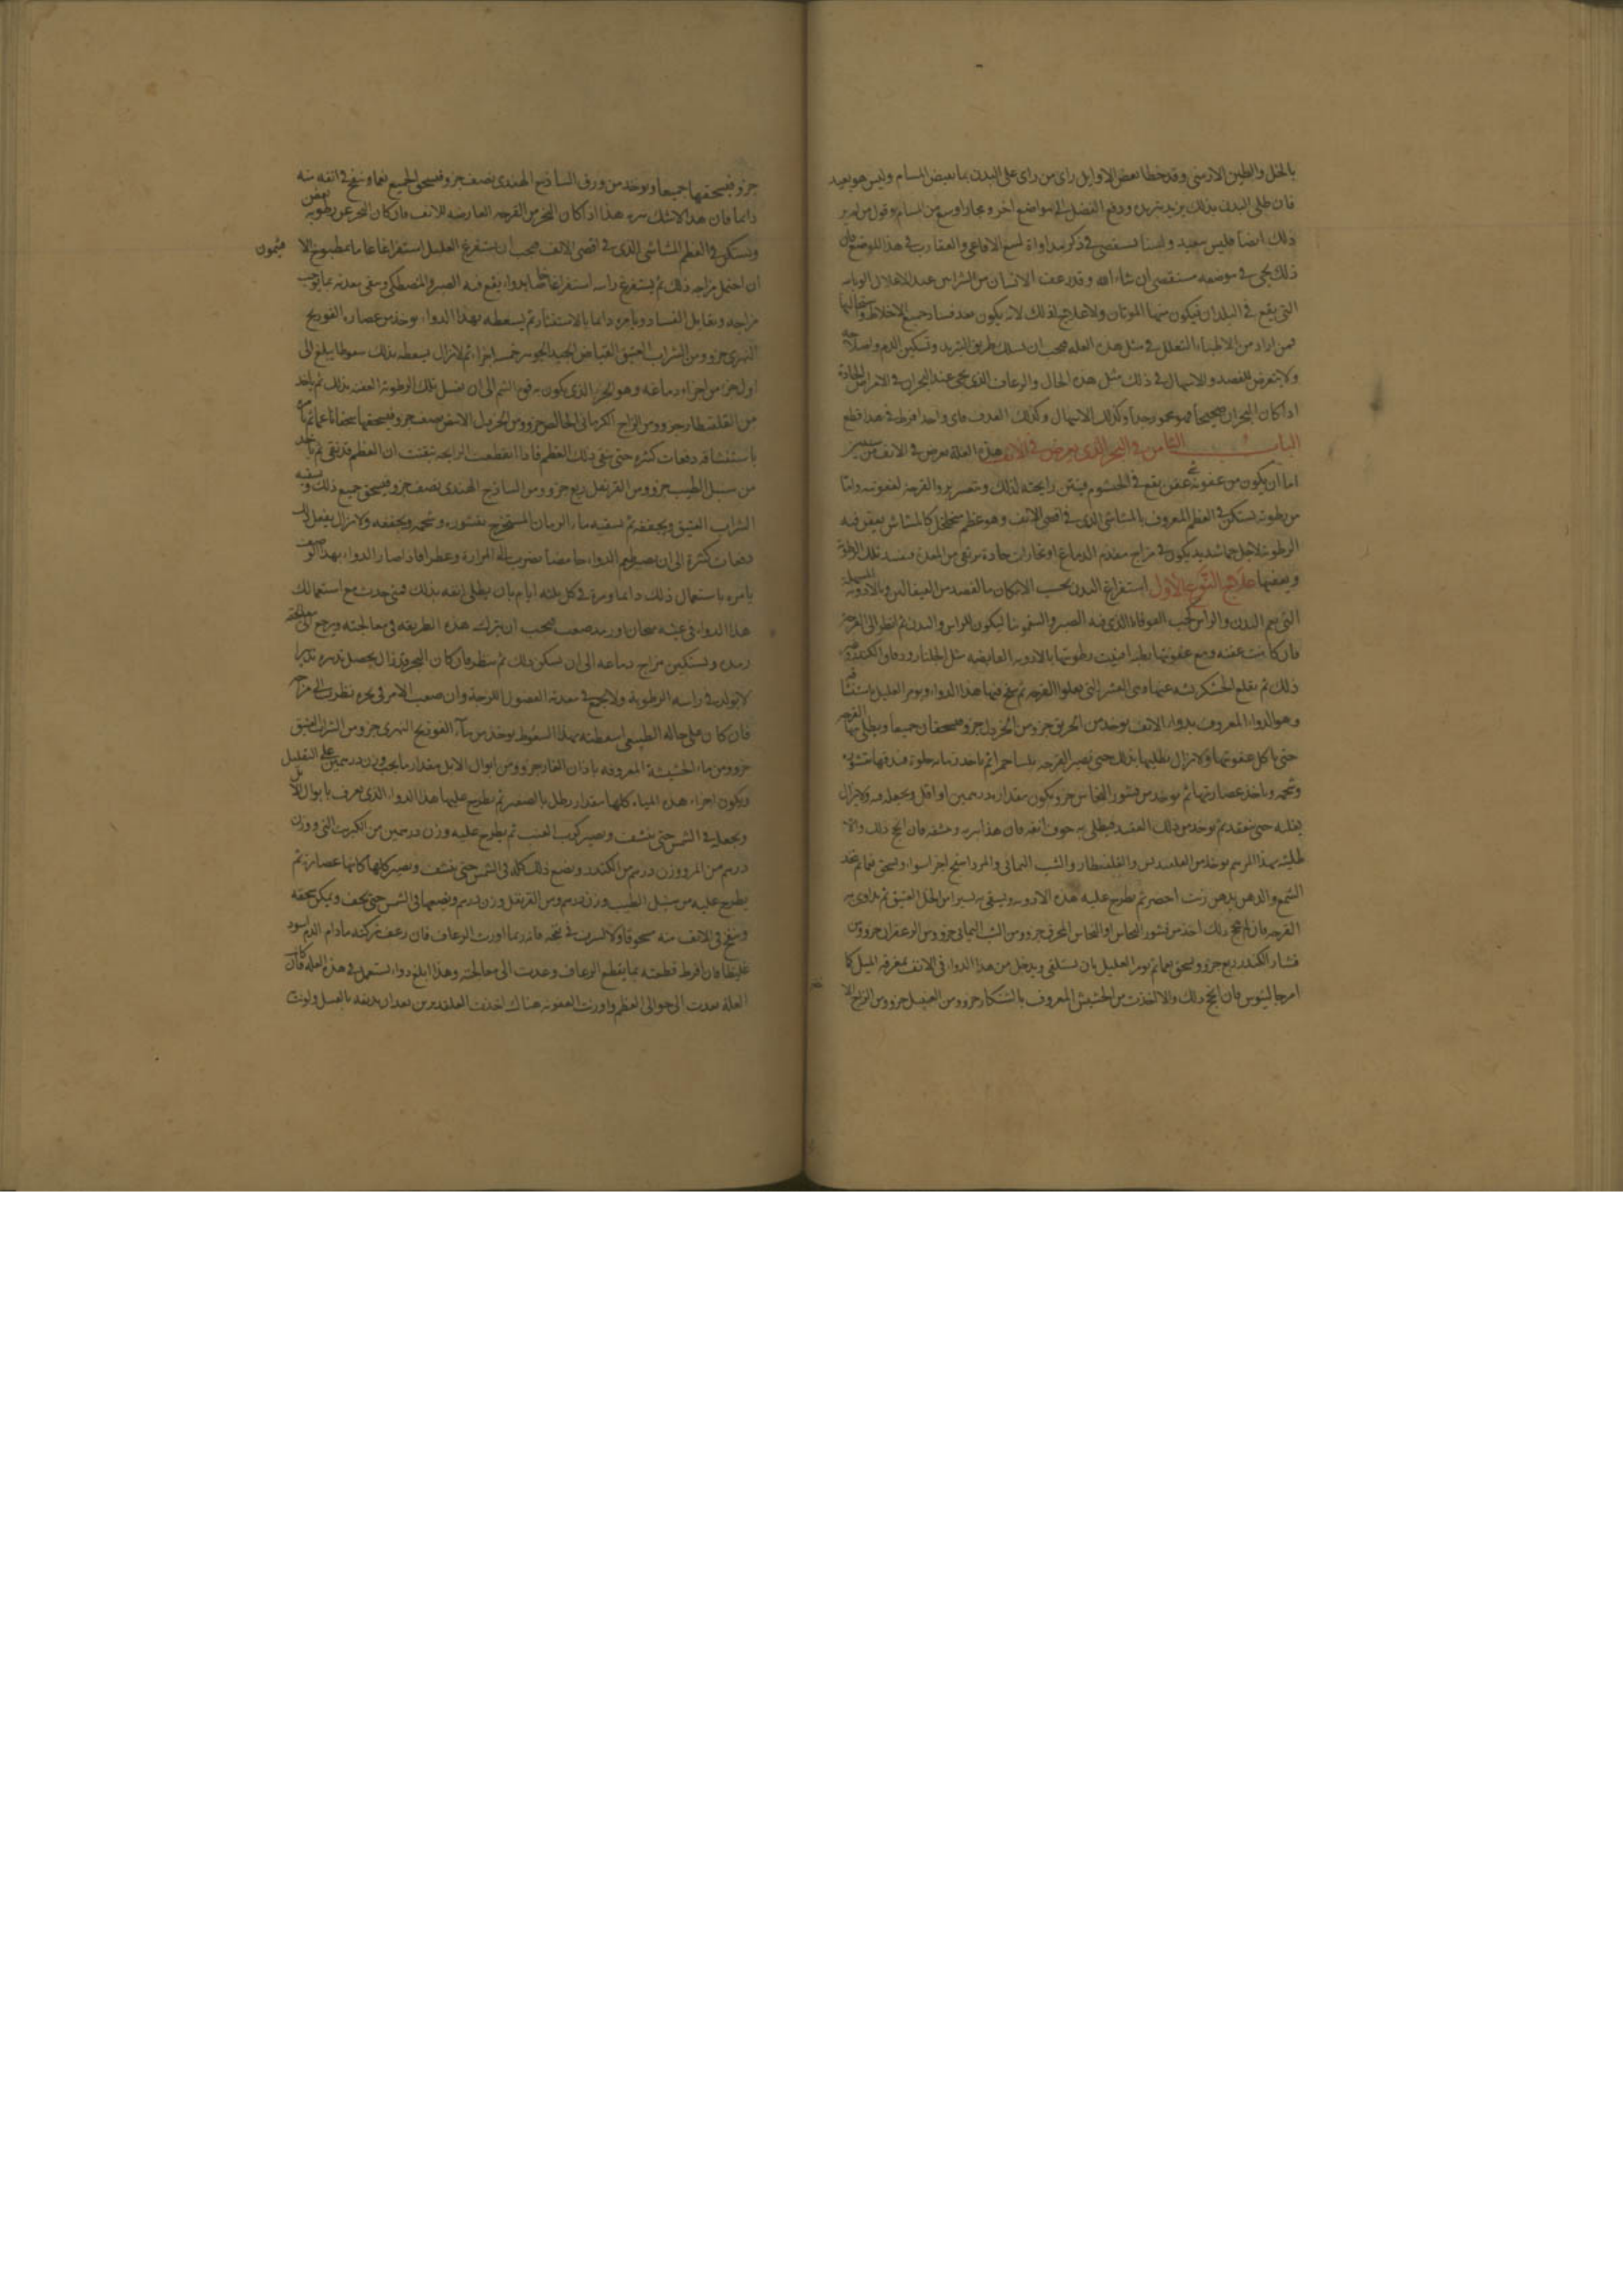 بالخل والطين الارمنى وقد خطا بعض الاوايل راى من راى على البدن بما يقبض المسام وليس هو بعيد
فان طلى البدن بذلك يزيد تبريده ودفع الفضل الى مواضع اخر ومجار اوسع من المسام وقول من لم ير
ذلك ايضا فليس ببعيد ولسنا نستقصى فى ذكر مداواة لسع الافاعى والعقارب فى هذا الموضع فان
ذلك يجى فى موضعه مستقصى ان شاء الله وقد رعف الانسان من الشرايين عند الاعلال الوبايه
التى يقع فى البلدان فيكون منها الموتان ولا علاج لذلك لانه يكون بعد فساد جميع الاخلاط
فمن اراد من الاطباء التعلل فى مثل هذه العله فيجب ان يسلك طريق التبريد وتسكين الدم واصلاحه
ولا يتعرض للفصد والاسهال فى ذلك مثل هذه الحال والرعاف الذى يجى عند البحران فى الامراض الحادة
اذا كان البحران صحيحا فهو محمود جدا وكذلك الاسهال وكذلك العرق فاى واحد افرط فى هذا قطع
الباب الثامن فى البخر الذى يعرض فى الانف هذه العلة تعرض فى الانف من سببين
اما ان يكون من عفونة عفن يقع فى الخيشوم فينتن رايحته لذلك وتعسر برء القرحة لعفونته واما
من رطوبة تستكن فى العظم المعروف بالمشاشى الذى فى اقصى الانف وهو عظم متخلخل كالمشاش يعفن فيه
الرطوبة لاجل حما شديد يكون فى مزاج مقدم الدماغ او بخارات حادة ترتقى من المعدة وتفسد تلك الرطوبة
ويعفنها علاج النوع الاول استفراغ البدن بحسب الامكان بالفصد من القيفالين وبالادوية المسهلة
التى تعم البدن والراس كحب القوقايا الذى فيه الصبر والسقمونيا ليكون للراس والبدن ثم انظر الى القرحة
فان كانت عفنه ومع عفونتها رطبة افنيت رطوبتها بالادوية القابضه مثل الجلنار ودقاق الكندر
ذلك ثم يقلع الخشكريشه عنها وهى القشر التى يعلوا القرحه ثم ينفخ فيها هذا الدواء ويومر العليل باستنشاقه
وهو الدواء المعروف بدواء الانف يوخذ من الخربق جزو من الخردل جزو فيسحقان جميعا ويطلى بها القرحه
حتى ياكل عفونتها ولا يزال يطليها بذلك حتى تصير القرحه ملسا حمرا ثم ياخذ رمانه حلوة فيدقها بقشوره
وشحمه وياخذ عصارتها ثم يوخذ من قشور النحاس جزو يكون مقداره درهمين او اقل ويجعله فيه ولا يزال
يغليه حتى ينعقد ثم يوخذ من ذلك العقيد فيطلى به جوف انفه فان هذا يبريه وينشفه فان انجح ذلك والا
طليته بهذا المرهم يوخذ من القلقديس والقلقطار والشب اليمانى والمرداسنج اجزا سوا ويسحق نعما ثم يتخذ
الشمع والدهن بدهن زيت اخضر ثم يطرح عليه هذه الادويه ويسقى به يسيرا من الخل العتيق ثم يداوى به
القرحه فان لم ينجح ذلك اخذ من قشور النحاس او النحاس المحرق جزو ومن الشب اليمانى جزو ومن الزعفران جزو ومن
قشار الكندر ربع جزو ويسحق نعما ثم يومر العليل بان يستلقى ويدخل من هذا الدواء فى الانف بمغرفه الميل كما
امر جالينوس فان انجح ذلك والا اخذت من الحشيش المعروف بالشنكار جزو ومن العنصل جزو ومن الزاج
جزو فيسحقها جميعا ويوخذ من ورق الساذج الهندى نصف جزو فيسحق الجميع نعما وينفخ فى انفه منه
دايما فان هذا لا شك يبريه هذا اذا كان البخر من القرحه العارضه للانف فان كان البخر عن رطوبه تعفن
وتستكن فى العظم المشاشى الذى فى اقصى الانف فيجب ان يستفرغ العليل استفراغا عاما بمطبوخ الا
فيثمون
ان احتمل مزاجه ذلك ثم يستفرغ راسه استفراغا خاصا بدواء يقع فيه الصبر والمصطكى وينقى معدته بما يوجب
مزاجه ويقابل الفساد ويامره دايما بالاستنثار ثم يسعطه بهذا الدواء يوخذ من عصارة الفودنج
النهرى جزو ومن الشراب العتيق القابض الجيد الجوهر خمسه اجزاء ثم لا يزال يسعطه بذلك سعوطا يبلغ الى
اول جزء من اجزاء دماغه وهو الجزء الذى يكون به قوة الشم الى ان يغسل تلك الرطوبة العفنه بذلك ثم ياخذ
من القلقطار جزو ومن الزاج الكرمانى الخالص جزو ومن الخردل الابيض نصف جزو فيسحقها سحقا ناعما ثم يامره
باستنشاقه دفعات كثيره حتى ينقى ذلك العظم فاذا انقطعت الرايحه تيقنت ان العظم قد نقى ثم ياخذ
من سنبل الطيب جزو ومن القرنفل ربع جزو ومن الساذج الهندى نصف جزو فيسحق جميع ذلك ويسقيه
الشراب العتيق ويجففه ثم يسقيه ماء الرمان المستخرج بقشوره وشحمه ويجففه ولا يزال يفعل ذلك
دفعات كثيرة الى ان يصير طعم الدواء حامضا يضرب الى المرارة وعطرا فاذا صار الدواء بهذا الوصف
يامره باستعمال ذلك دايما ومرة فى كل ثلثه ايام بان يطلى انفه بذلك فمتى حدث مع استعمالك
هذا الدواء فى عينه سحان او رمد صعب فيجب ان يترك هذه الطريقه فى معالجته ويرجع الى معالجة
رمده وتسكين مزاج دماغه الى ان يسكن ذلك ثم ينظر فان كان البخر قد زال يحصل تدبيره تدبيرا
لا يولد فى راسه الرطوبة ولا يجمع فى معدته الفضول اللزجة وان صعب الامر فى بخره نظرت الى مزاجه
فان كان على حاله الطبيعى اسعطته بهذا السعوط يوخذ من ماء الفودنج النهرى جزو ومن الشراب العتيق
جزو ومن ماء الحشيشة المعروفه باذان الفار جزو ومن ابوال الابل مقدار ما يجب وزن درهمين على التقليل
ويكون اجزاء هذه المياه كلها مقدار رطل بالصغير ثم يطرح عليها هذا الدواء الذى يعرف بابوال الابل
ويجعل فى الشمس حتى ينشف ويصير كرب العنب ثم يطرح عليه وزن درهمين من الكبريت النى ووزن
درهم من المر ووزن درهم من الكندر ويضع ذلك كله فى الشمس حتى ينشف ويصير كلها كانها عصارة ثم
يطرح عليه من سنبل الطيب وزن درهم ومن القرنفل وزن درهم ويضعها فى الشمس حتى يجف ويمكن سحقه
وينفخ فى الانف منه مسحوقا ولا تسرف فى نفخه فانه ربما اورث الرعاف فان رعف تركته مادام الدم اسود
غليظا فان افرط قطعته بما يقطع الرعاف وعدت الى معالجته وهذا ابلغ دواء يستعمل فى هذه العله فان كانت
العلة تعدت الى حوالى العظم واورثت العفونه هناك اخذت القلقديس من بعد ان يدنفه بالعسل ولوثت